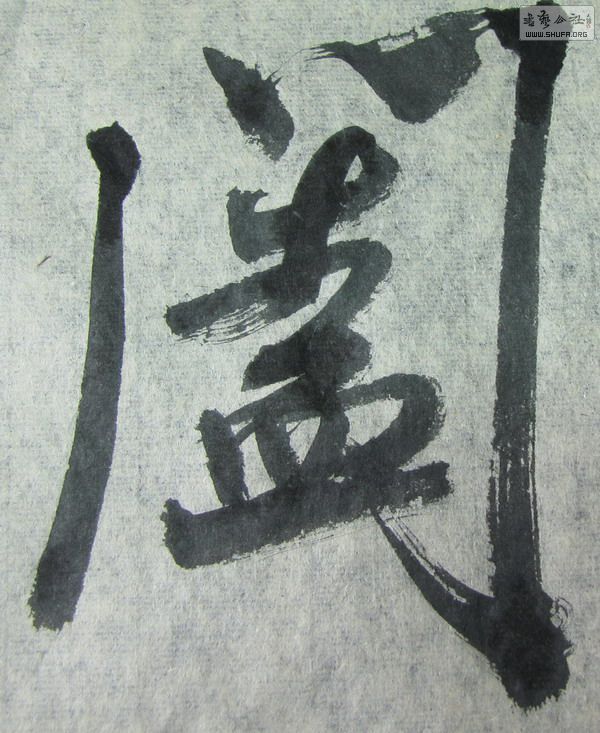 書藝公社
WWW.SHUFA.ORG
阖